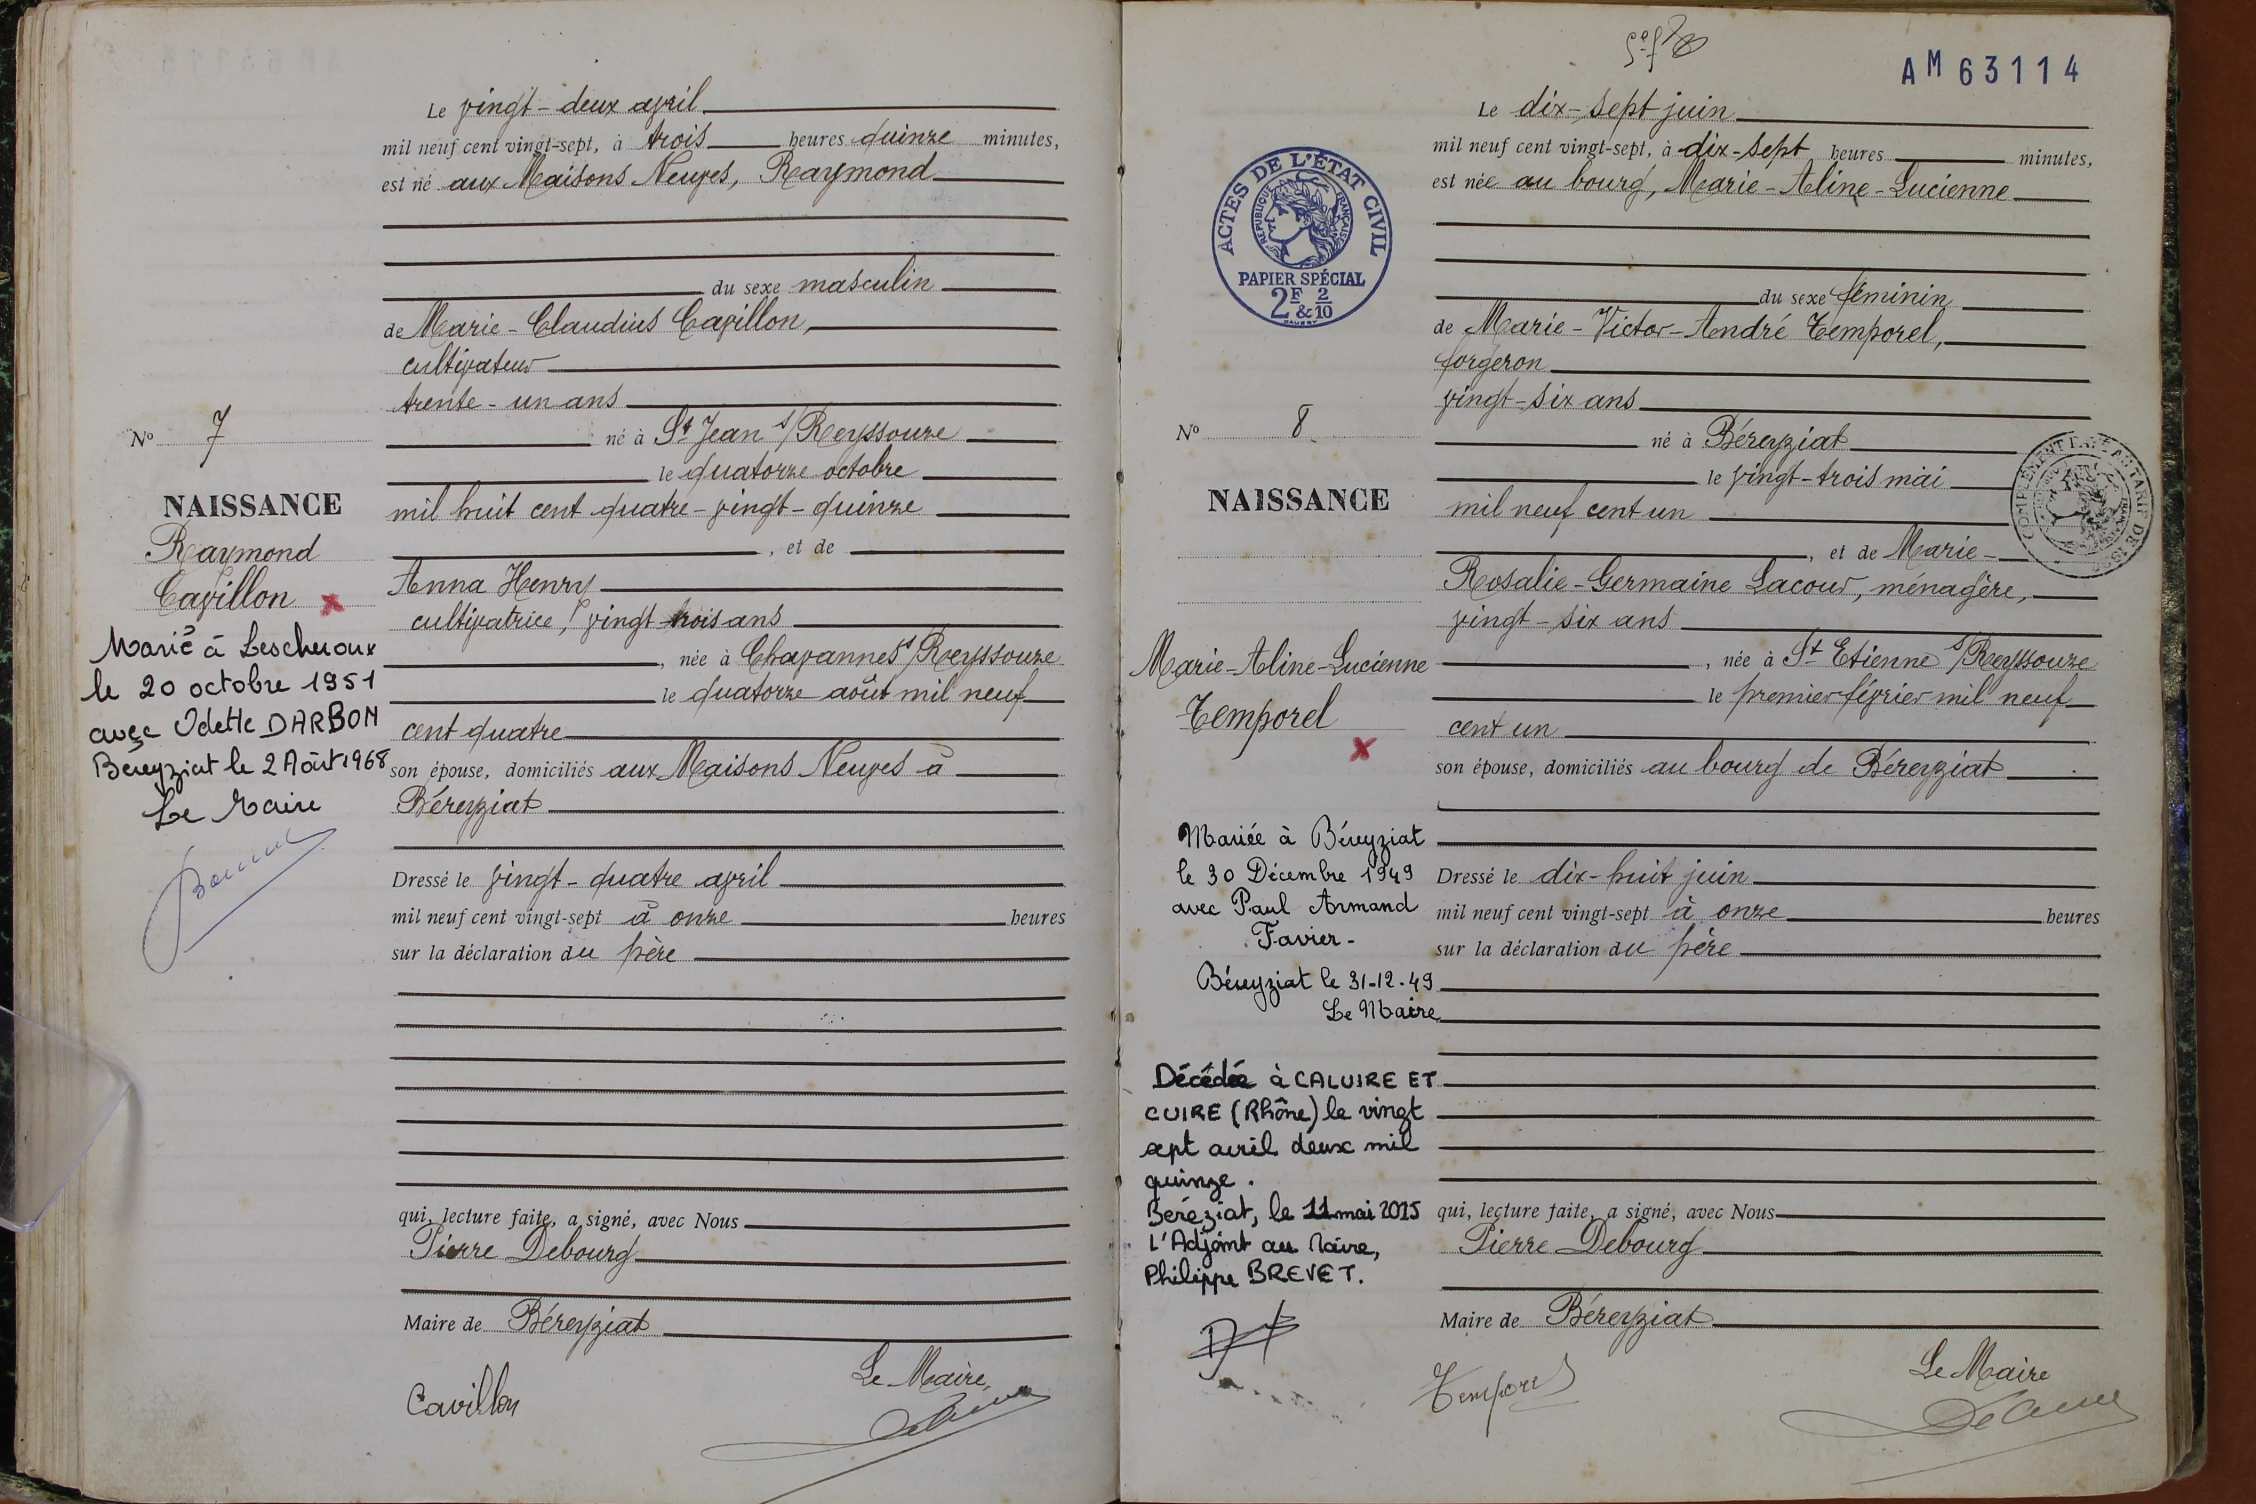 Le vingt-deux avril
mil neuf cent vingt-sept, à trois heures quinze minutes,
est né aux Maisons Neuves, Raymond
du sexe masculin
de Marie-Claudius Cavillon,
cultivateur
trente-un ans
né à St Jean s/Reyssouze
le quatorze octobre
mil huit cent quatre-vingt-quinze
, et de
Anna Henry
cultivatrice, vingt-trois ans
, née à Chavannes s/Reyssouze
le quatorze août mil neuf
cent quatre
son épouse, domiciliés aux Maisons Neuves à
Béreyziat
Dressé le vingt-quatre avril
mil neuf cent vingt-sept à onze heures
sur la déclaration du père
qui, lecture faite, a signé, avec Nous
Pierre Debourg
Maire de Béreyziat
Le Maire,
Cavillon
No 7
NAISSANCE
Raymond
Cavillon
Marié à Lescheroux
le 20 octobre 1951
avec Odette DARBON
Béreyziat le 2 Août 1968
Le Maire
AM 63114
Le dix-sept juin
mil neuf cent vingt-sept, à dix-sept heures minutes,
est née au bourg, Marie-Aline-Lucienne
du sexe féminin
de Marie-Victor-André Temporel,
forgeron
vingt-six ans
né à Béreyziat
le vingt-trois mai
mil neuf cent un
, et de Marie-
Rosalie-Germaine Lacour, ménagère,
vingt-six ans
, née à St Etienne s/Reyssouze
le premier février mil neuf
cent un
son épouse, domiciliés au bourg de Béreyziat
Dressé le dix-huit juin
mil neuf cent vingt-sept à onze heures
sur la déclaration du père
qui, lecture faite, a signé, avec Nous
Pierre Debourg
Maire de Béreyziat
Le Maire
Temporel
ACTES DE L'ÉTAT CIVIL
RÉPUBLIQUE FRANÇAISE
PAPIER SPÉCIAL
2F & 2/10
No 8
NAISSANCE
Marie-Aline-Lucienne
Temporel
Mariée à Béreyziat
le 30 Décembre 1949
avec Paul Armand
Favier-
Béreyziat le 31-12-49
Le Maire
Décédée à CALUIRE ET
CUIRE (Rhône) le vingt
sept avril deux mil
quinze.
Beréziat, le 11 mai 2015
L'Adjoint au Maire,
Philippe BREVET.